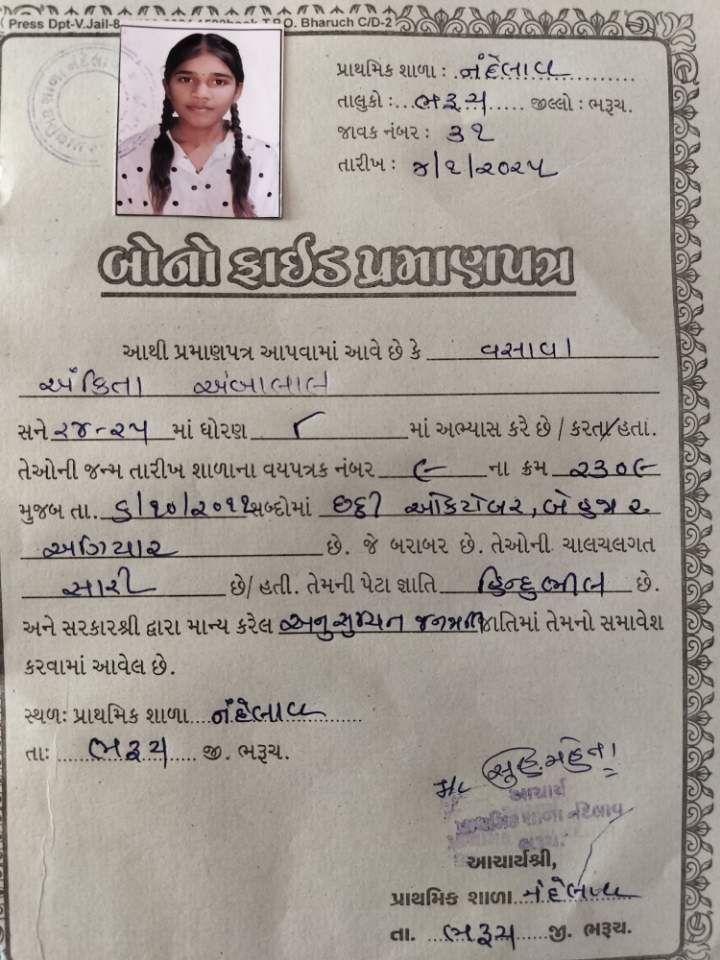 Press Dpt-V.Jail-8 T.P.O. Bharuch C/D-2
પ્રાથમિક શાળા : નંદેલાવ
તાલુકો : ભરૂચ જીલ્લો : ભરૂચ.
જાવક નંબર : ૩૧
તારીખ : ૪/૧/૨૦૨૫
બોનો ફાઈડ પ્રમાણપત્ર
આથી પ્રમાણપત્ર આપવામાં આવે છે કે વસાવા
અંકિતા અંબાલાલ
સને ૨૪-૨૫ માં ધોરણ ૮ માં અભ્યાસ કરે છે / કરતા/હતા.
તેઓની જન્મ તારીખ શાળાના વયપત્રક નંબર ૯ ના ક્રમ ૨૩૦૯
મુજબ તા. ૬/૧૦/૨૦૧૧ સબ્દોમાં છઠ્ઠી ઓક્ટોબર, બે હજાર
અગિયાર છે. જે બરાબર છે. તેઓની ચાલચલગત
સારી છે/ હતી. તેમની પેટા જ્ઞાતિ હિન્દુ ભીલ છે.
અને સરકારશ્રી દ્વારા માન્ય કરેલ અનુસુચિત જનજાતિમાં તેમનો સમાવેશ
કરવામાં આવેલ છે.
સ્થળઃ પ્રાથમિક શાળા નંદેલાવ
તાઃ ભરૂચ જી. ભરૂચ.
આચાર્ય
આચાર્યશ્રી,
પ્રાથમિક શાળા નંદેલાવ
તા. ભરૂચ જી. ભરૂચ.